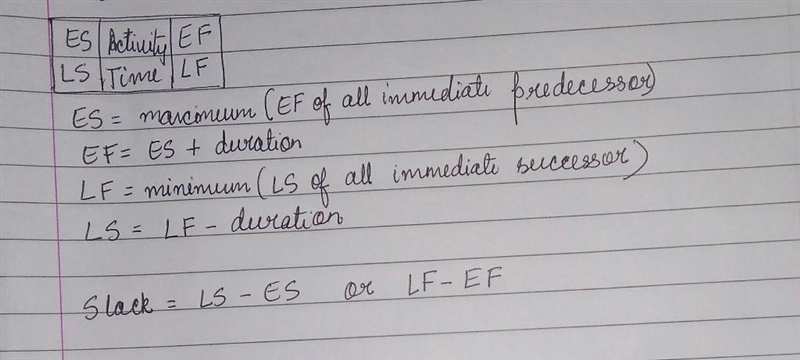 ES Activity EF
LS Time LF
ES = maximum (EF of all immediate predecessor)
EF = ES + duration
LF = minimum (LS of all immediate successor)
LS = LF - duration
Slack = LS - ES or LF - EF